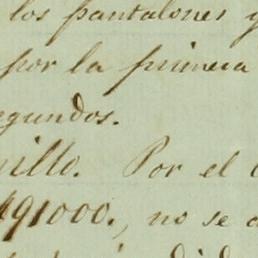 los pantalones y
por la primera
egundos.
illo. Por el
491000., no se